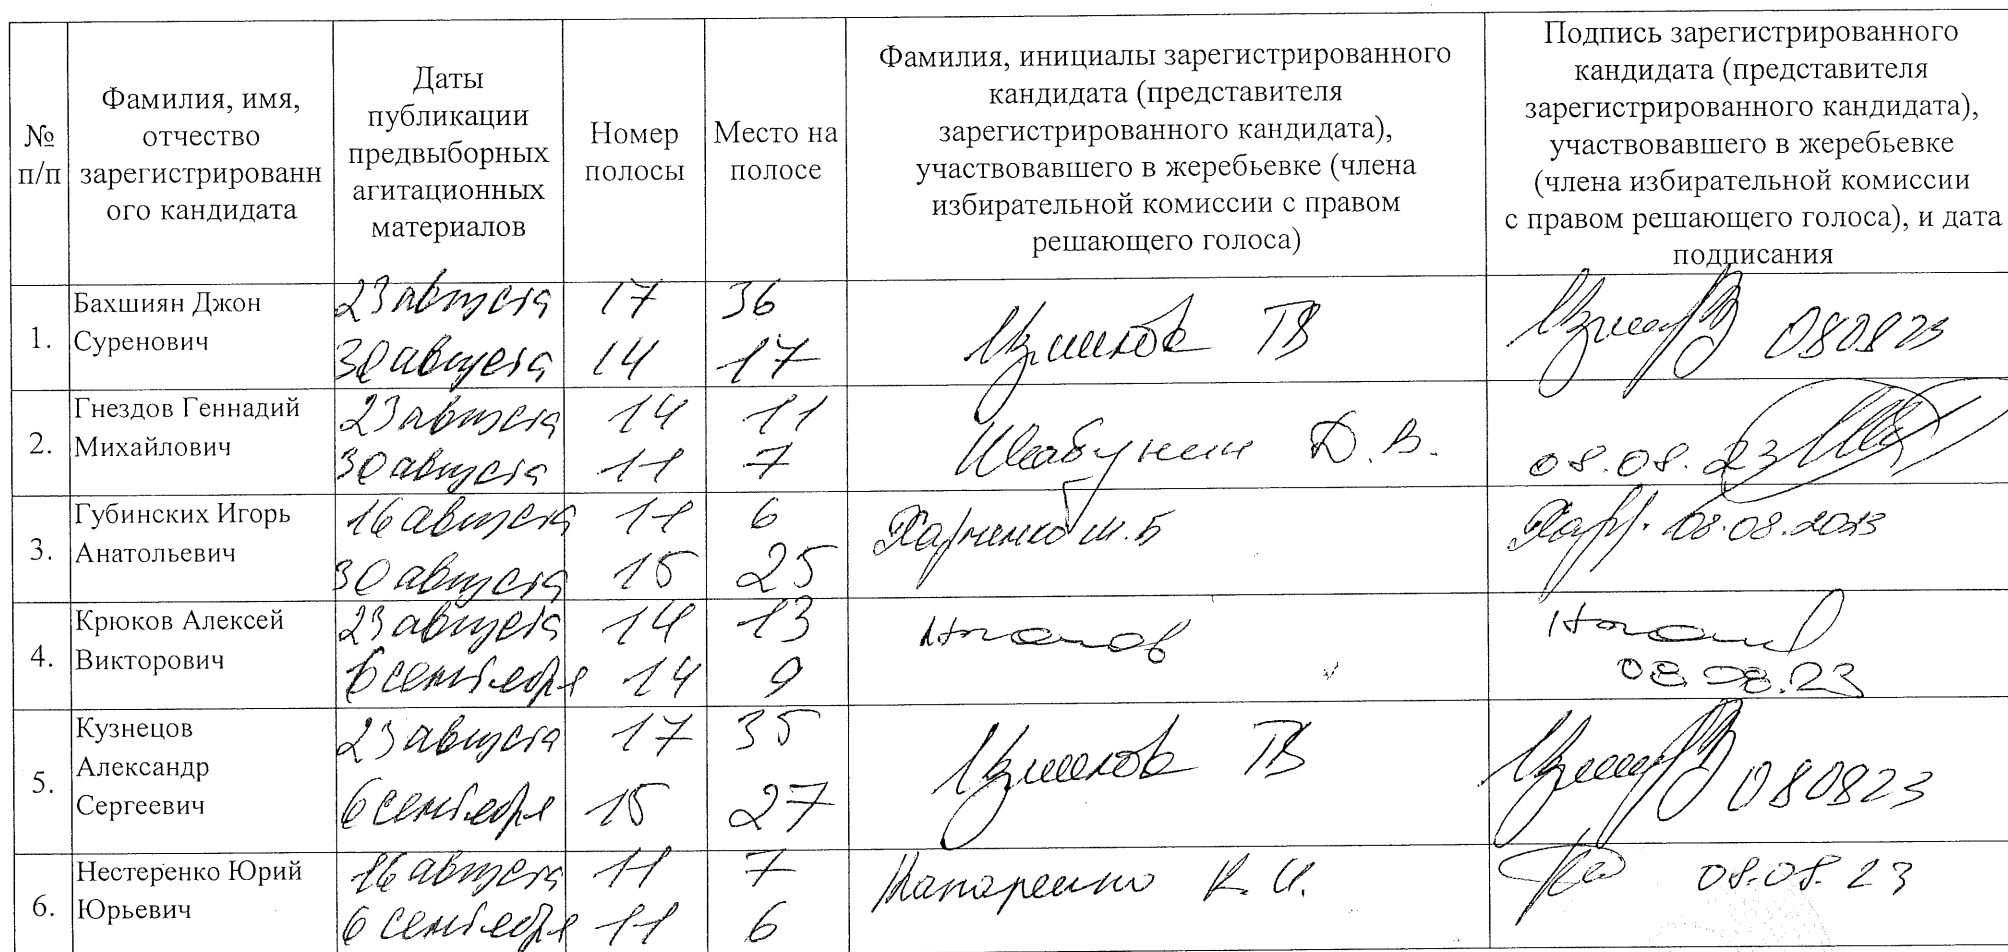 № п/п
Фамилия, имя,
отчество
зарегистрированн
ого кандидата
Даты
публикации
предвыборных
агитационных
материалов
Номер
полосы
Место на
полосе
Фамилия, инициалы зарегистрированного
кандидата (представителя
зарегистрированного кандидата),
участвовавшего в жеребьевке (члена
избирательной комиссии с правом
решающего голоса)
Подпись зарегистрированного
кандидата (представителя
зарегистрированного кандидата),
участвовавшего в жеребьевке
(члена избирательной комиссии
с правом решающего голоса), и дата
подписания
1.
Бахшиян Джон
Суренович
23 августа 17 36
30 августа 14 17
ТВ
080823
2.
Гнездов Геннадий
Михайлович
23 августа 14 11
30 августа 11 7
Шабунин Д.В.
08.08.23
3.
Губинских Игорь
Анатольевич
16 августа 11 6
30 августа 15 25
Харченко
08.08.2023
4.
Крюков Алексей
Викторович
23 августа 14 13
6 сентября 14 9
08.08.23
5.
Кузнецов
Александр
Сергеевич
23 августа 17 35
6 сентября 15 27
ТВ
080823
6.
Нестеренко Юрий
Юрьевич
16 августа 11 7
6 сентября 11 6
08.08.23